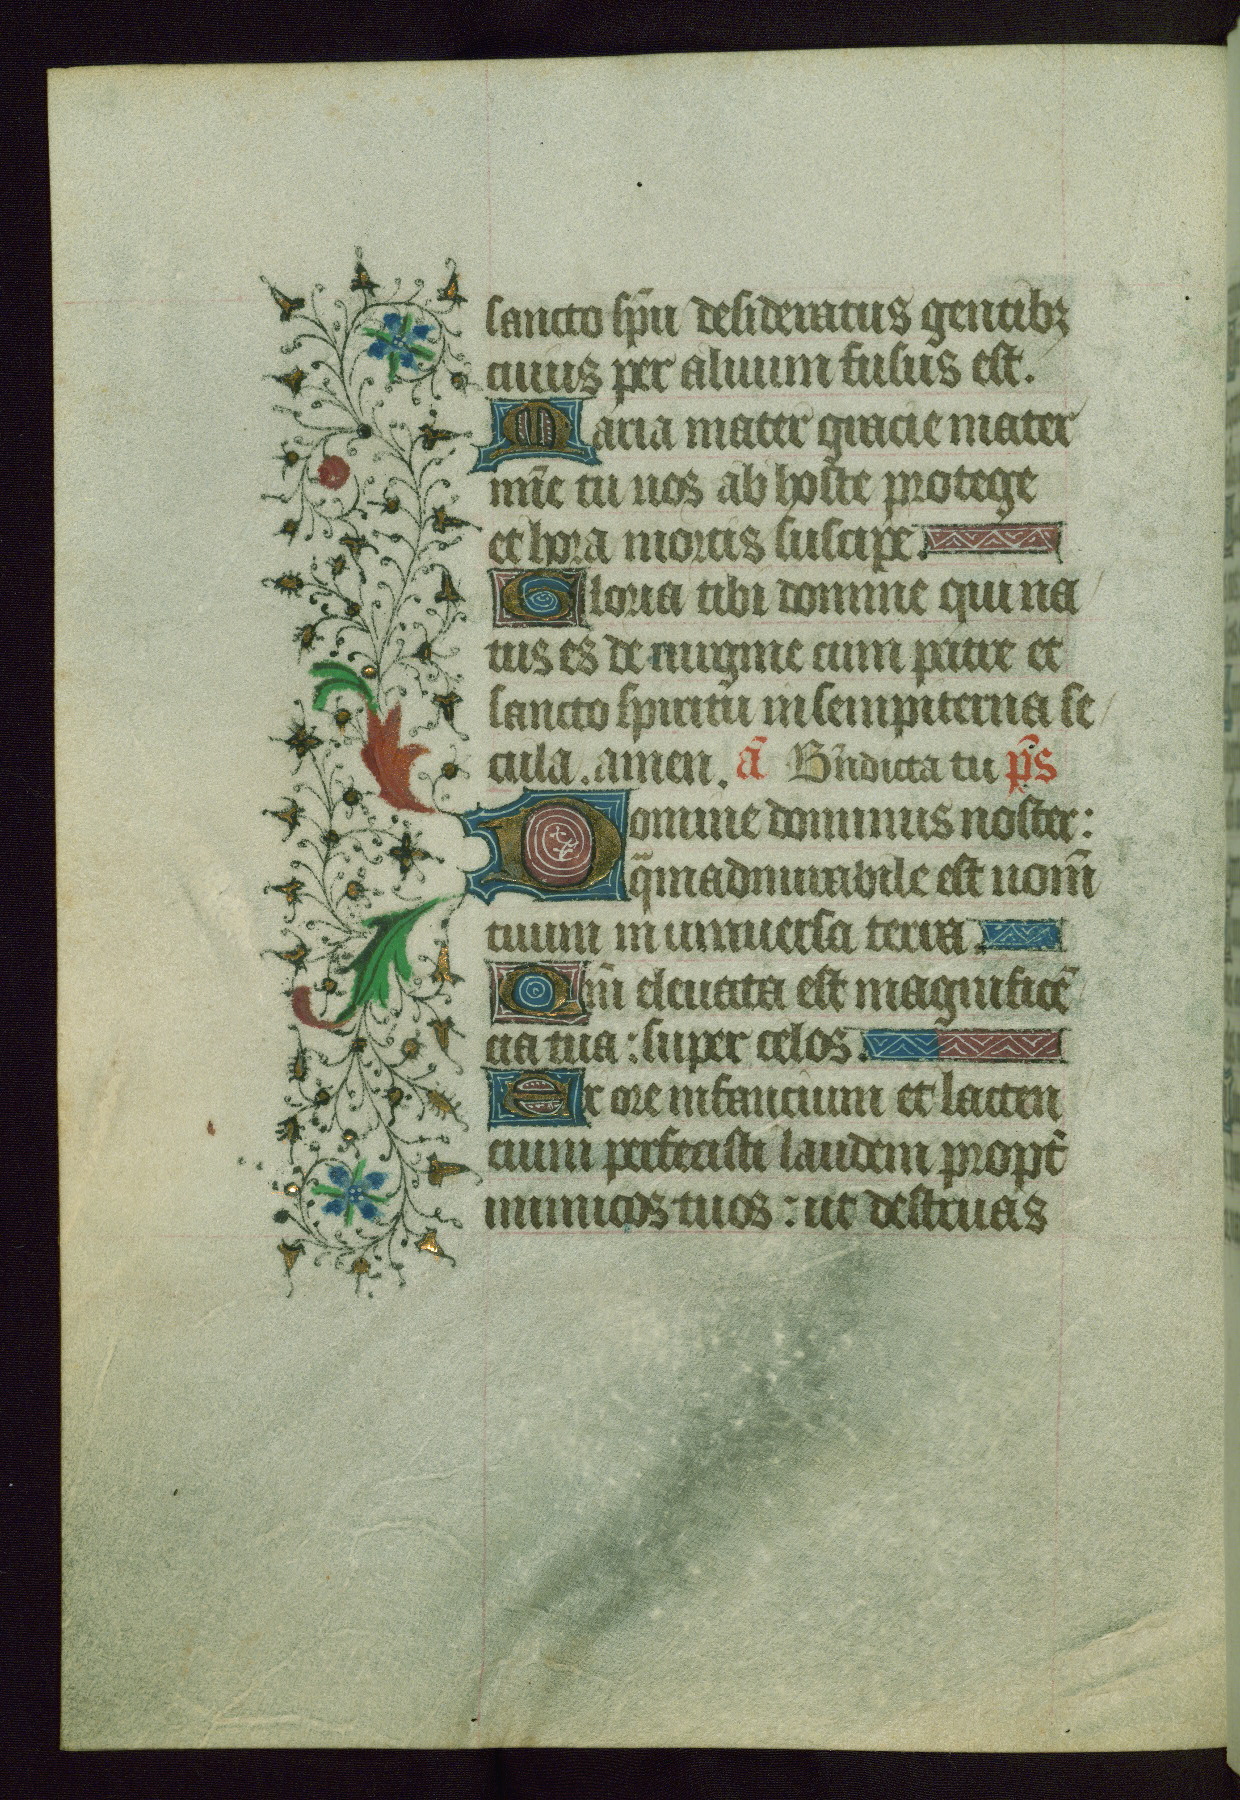 sancto sp̄u desideratus gentibꝫ
cuius per aluum fusus est.
Maria mater gracie mater
mīe tu nos ab hoste protege
et hora mortis suscipe.
Gloria tibi domine qui na
tus es de uirgine cum patre et
sancto spiritū in sempiterna se
cula. amen. ā Bn̄dicta tu p̄s
Domine dominus noster:
q̄m admirabile est nom̄
tuum in uniuersa terra.
Qm̄ eleuata est magnificē
cia tua: super celos.
Ex ore infancium et lacten
cium perfecisti laudem propt̄
inimicos tuos: ut destruas